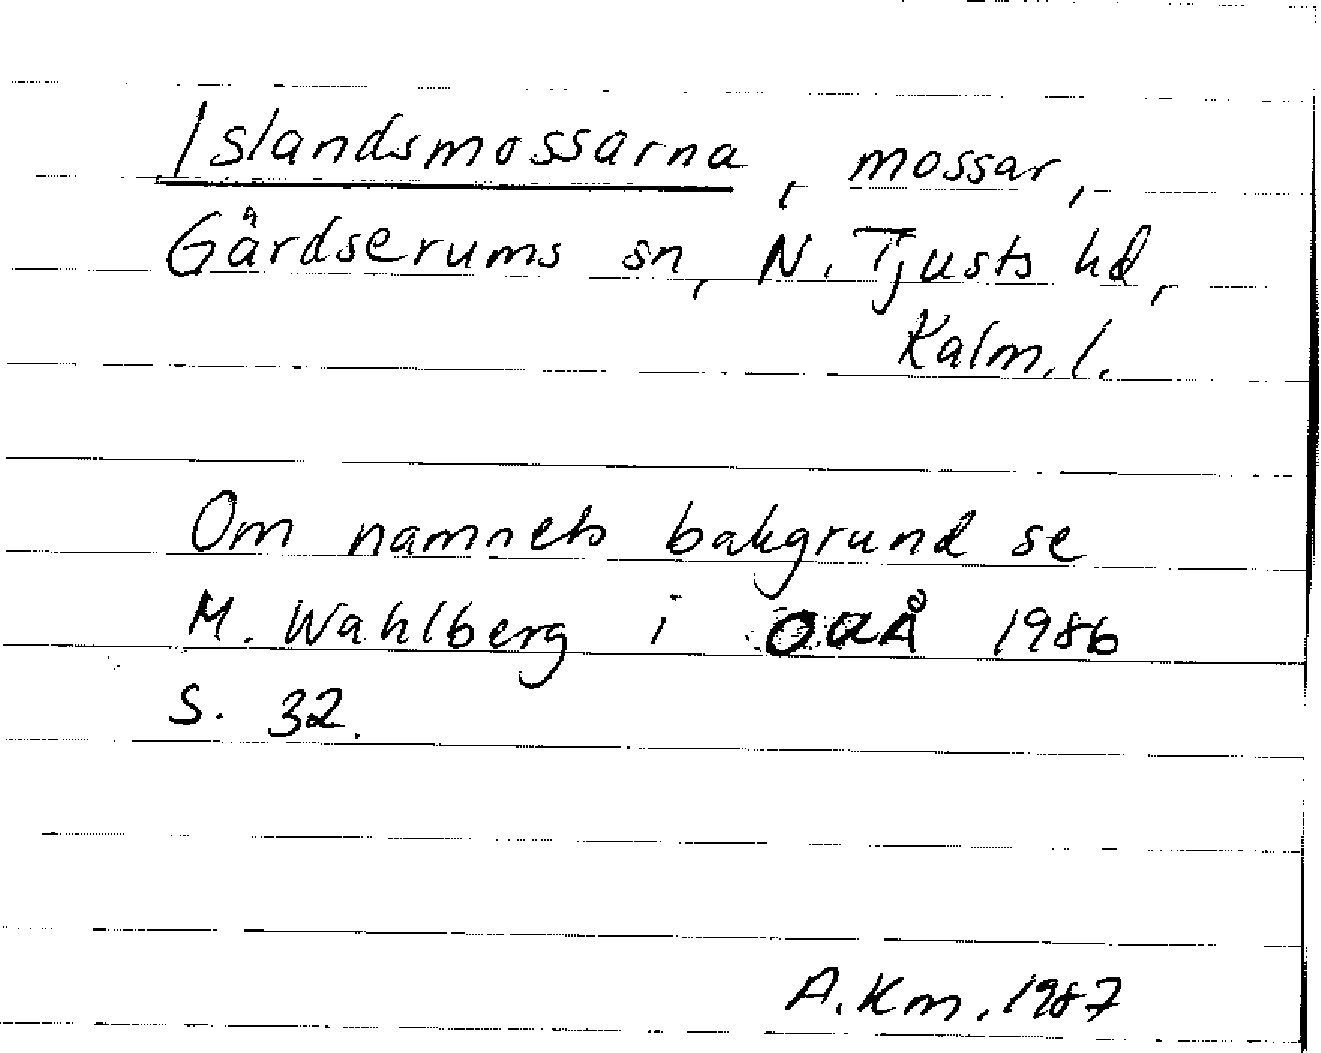 Islandsmossarna, mossar,
Gärdserums sn, N. Tjusts hd,
Kalm. l.
Om namnets bakgrund se
M. Wahlberg i OUÅ 1986
S. 32.
A. Km. 1987